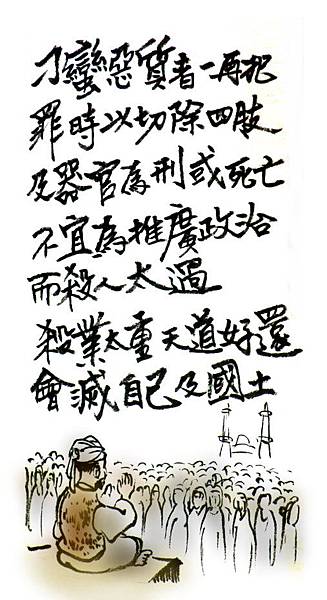 刁蠻惡質者一再犯
罪時以切除四肢
及器官為刑或死亡
不宜為推廣政治
而殺人太過
殺業太重天道好還
會滅自己及國土